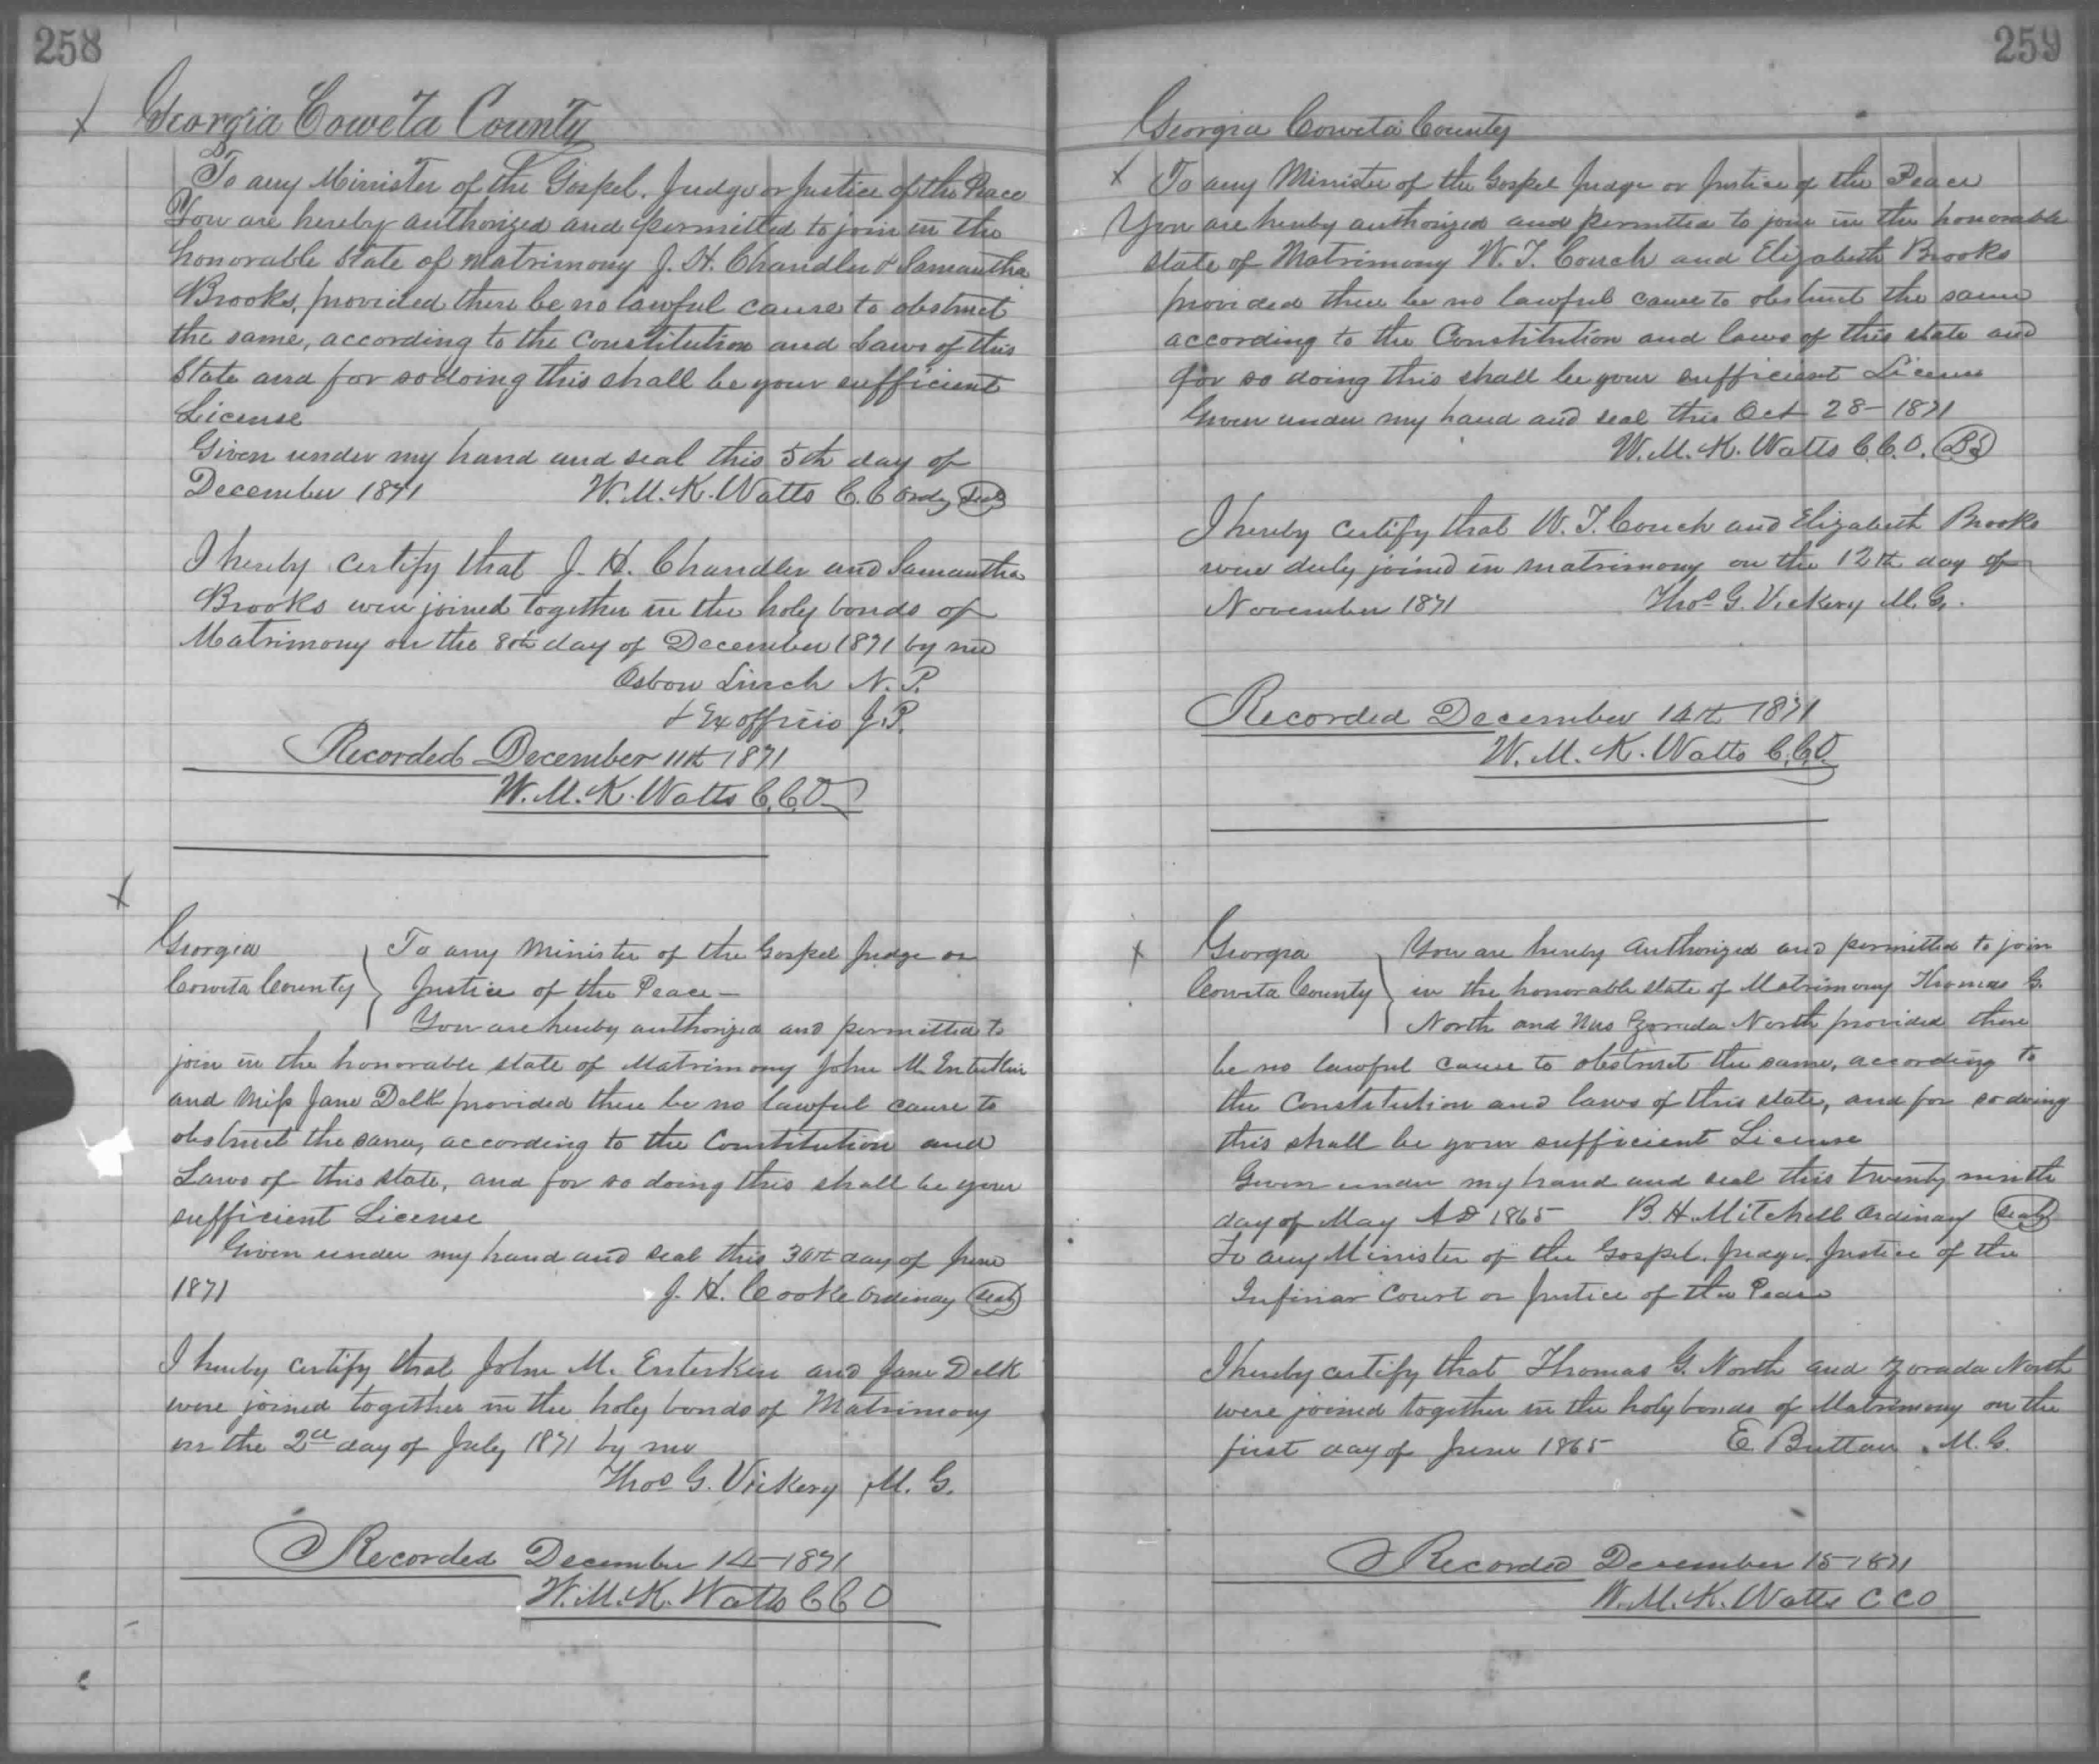 258
Georgia Coweta County
To any Minister of the Gospel, Judge or Justice of the Peace
You are hereby authorized and permitted to join in the
honorable State of matrimony J. H. Chandler & Samantha
Brooks, provided there be no lawful cause to obstruct
the same, according to the Constitution and Laws of this
State and for so doing this shall be your sufficient
License
Given under my hand and seal this 5th day of
December 1871 W. M. K. Watts C. C Ordy Seal
I hereby certify that J. H. Chandler and Samantha
Brooks were joined together in the holy bonds of
Matrimony on the 8th day of December 1871 by me
Osborn Linch N. P.
& Ex officio J. P.
Recorded December 11th 1871
W. M. K. Watts C. C. O
Georgia
Coweta County
To any Minister of the Gospel Judge or
Justice of the Peace –
You are hereby authorized and permitted to
join in the honorable state of Matrimony John M. Enterkin
and Miss Jane Delk provided there be no lawful cause to
obstruct the same, according to the Constitution and
Laws of this state, and for so doing this shall be your
sufficient License
Given under my hand and seal this 30th day of June
1871 J. H. Cooke Ordinary Seal
I hereby certify that John M. Enterkin and Jane Delk
were joined together in the holy bonds of Matrimony
on the 2d day of July 1871 by me
Thos G. Vickery M. G.
Recorded December 14 – 1871
W. M. K. Watts C C O
259
Georgia Coweta County
To any Minister of the Gospel Judge or Justice of the Peace
You are hereby authorized and permitted to join in the honorable
state of Matrimony W. T. Couch and Elizabeth Brooks
provided there be no lawful cause to obstruct the same
according to the Constitution and laws of this state and
for so doing this shall be your sufficient License
Given under my hand and seal this Oct 28 – 1871
W. M. K. Watts C. C. O.
I hereby certify that W. T. Couch and Elizabeth Brooks
were duly joined in matrimony on the 12th day of
November 1871 Thos G. Vickery M. G.
Recorded December 14th 1871
W. M. K. Watts C. C. O.
Georgia
Coweta County
You are hereby authorized and permitted to join
in the honorable state of Matrimony Thomas G.
North and Zorada North provided there
be no lawful cause to obstruct the same, according to
the Constitution and laws of this state, and for so doing
this shall be your sufficient License
Given under my hand and seal this twenty ninth
day of May AD 1865 B. H. Mitchell Ordinary Seal
To any Minister of the Gospel, Judge, Justice of the
Inferior Court or Justice of the Peace
I hereby certify that Thomas G. North and Zorada North
were joined together in the holy bonds of Matrimony on the
first day of June 1865 E. Brittan M. G.
Recorded December 15 1871
W. M. K. Watts C C O